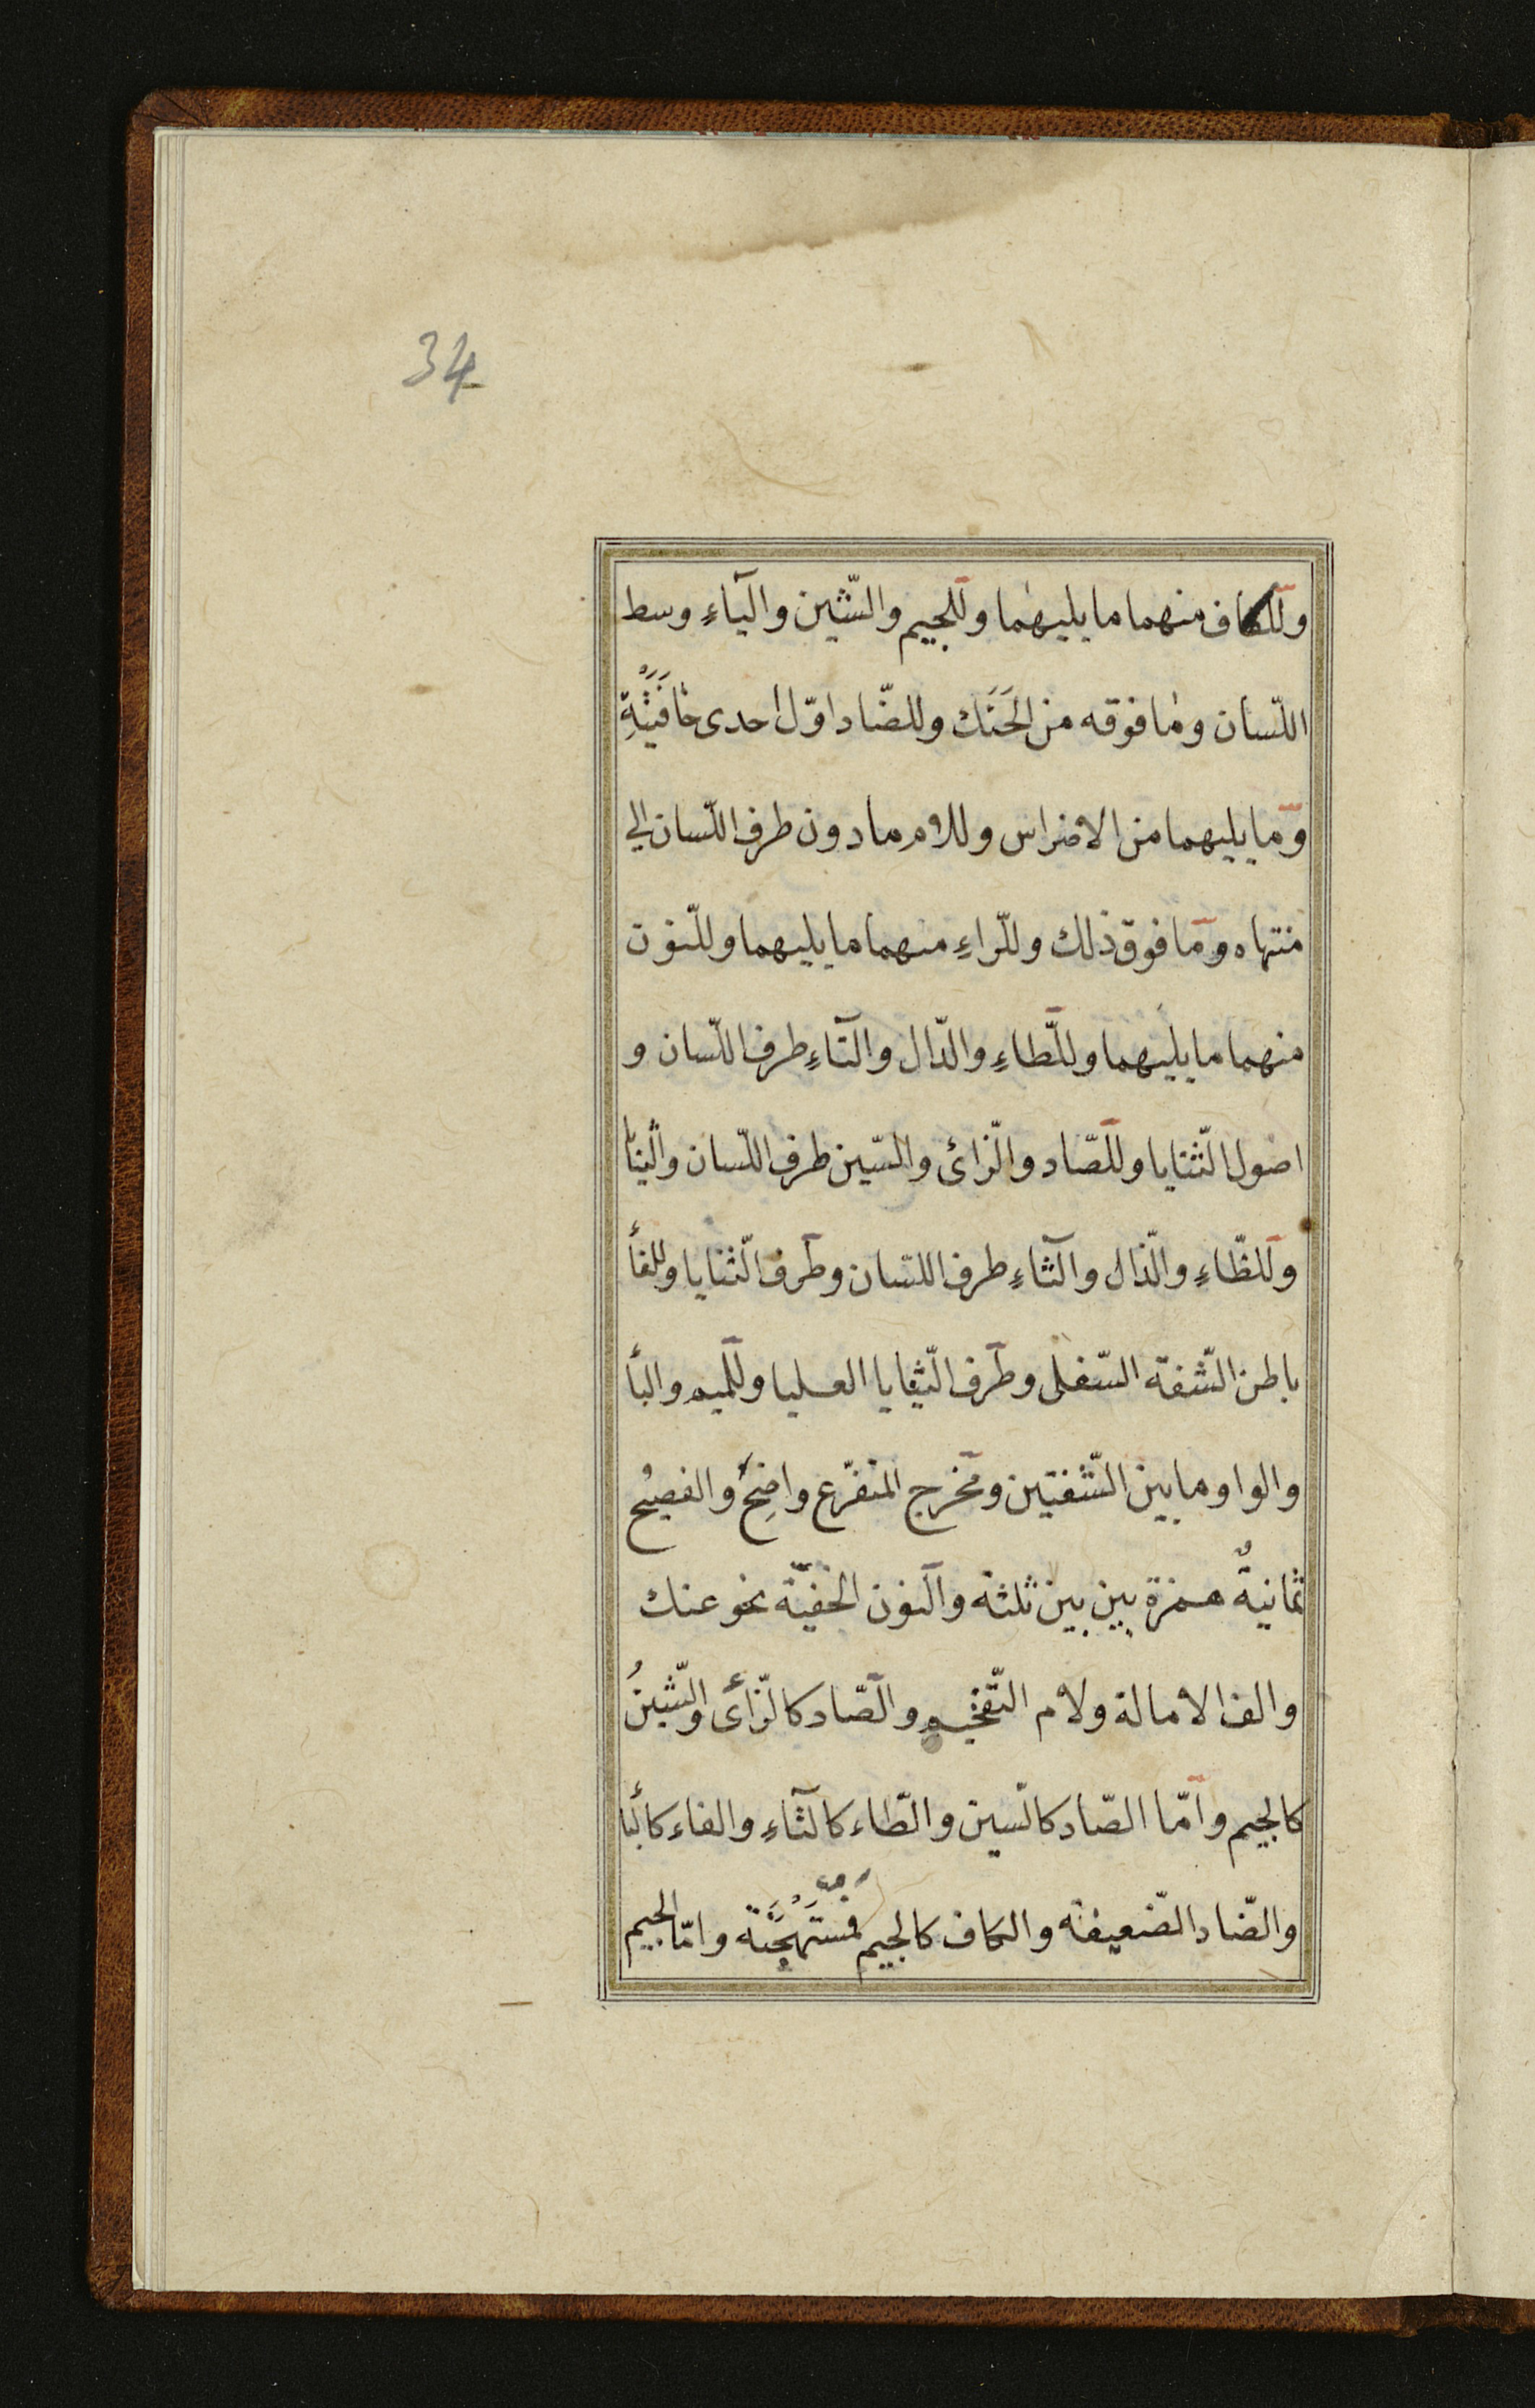 34
وللكاف منهما ما يليهما وللجيم والشّين والياءِ وسط
اللّسان وما فوقه من الحَنَك وللضّاد اوّل احدى حَافَتَيْهِ
وما يليهما من الاضراس وللام ما دون طرف اللّسان الى
منتهاه وما فوق ذلك وللّراءِ منهما ما يليهما وللنّون
منهما ما يليهما وللطّاءِ والدّال والتاءِ طرف اللّسان و
اصول الثّنايا وللصّاد والزّائ والسّين طرف اللّسان والثنايا
وللظّاءِ والذّال والثاءِ طرف اللسان وطرف الثّنايا وللفأ
باطن الشّفة السّفلى وطرف الثّنايا العليا وللميم والبأ
والواو ما بين الشّفتين ومخرج المتفرّع واضِحٌ والفصيُح
ثمانيةٌ همزة بين بين ثلثة والنون الخفيّة نحو عنك
والف الامالة ولام التّفخيم والصّاد كالزّائ والشّينُ
كالجيم وامّا الصّاد كالسين والطّاء كالتاءِ والفاء كالبأ
والضّاد الضّعيفة والكاف كالجيم فمُسْتَهْجَنَة وامّا الجيم